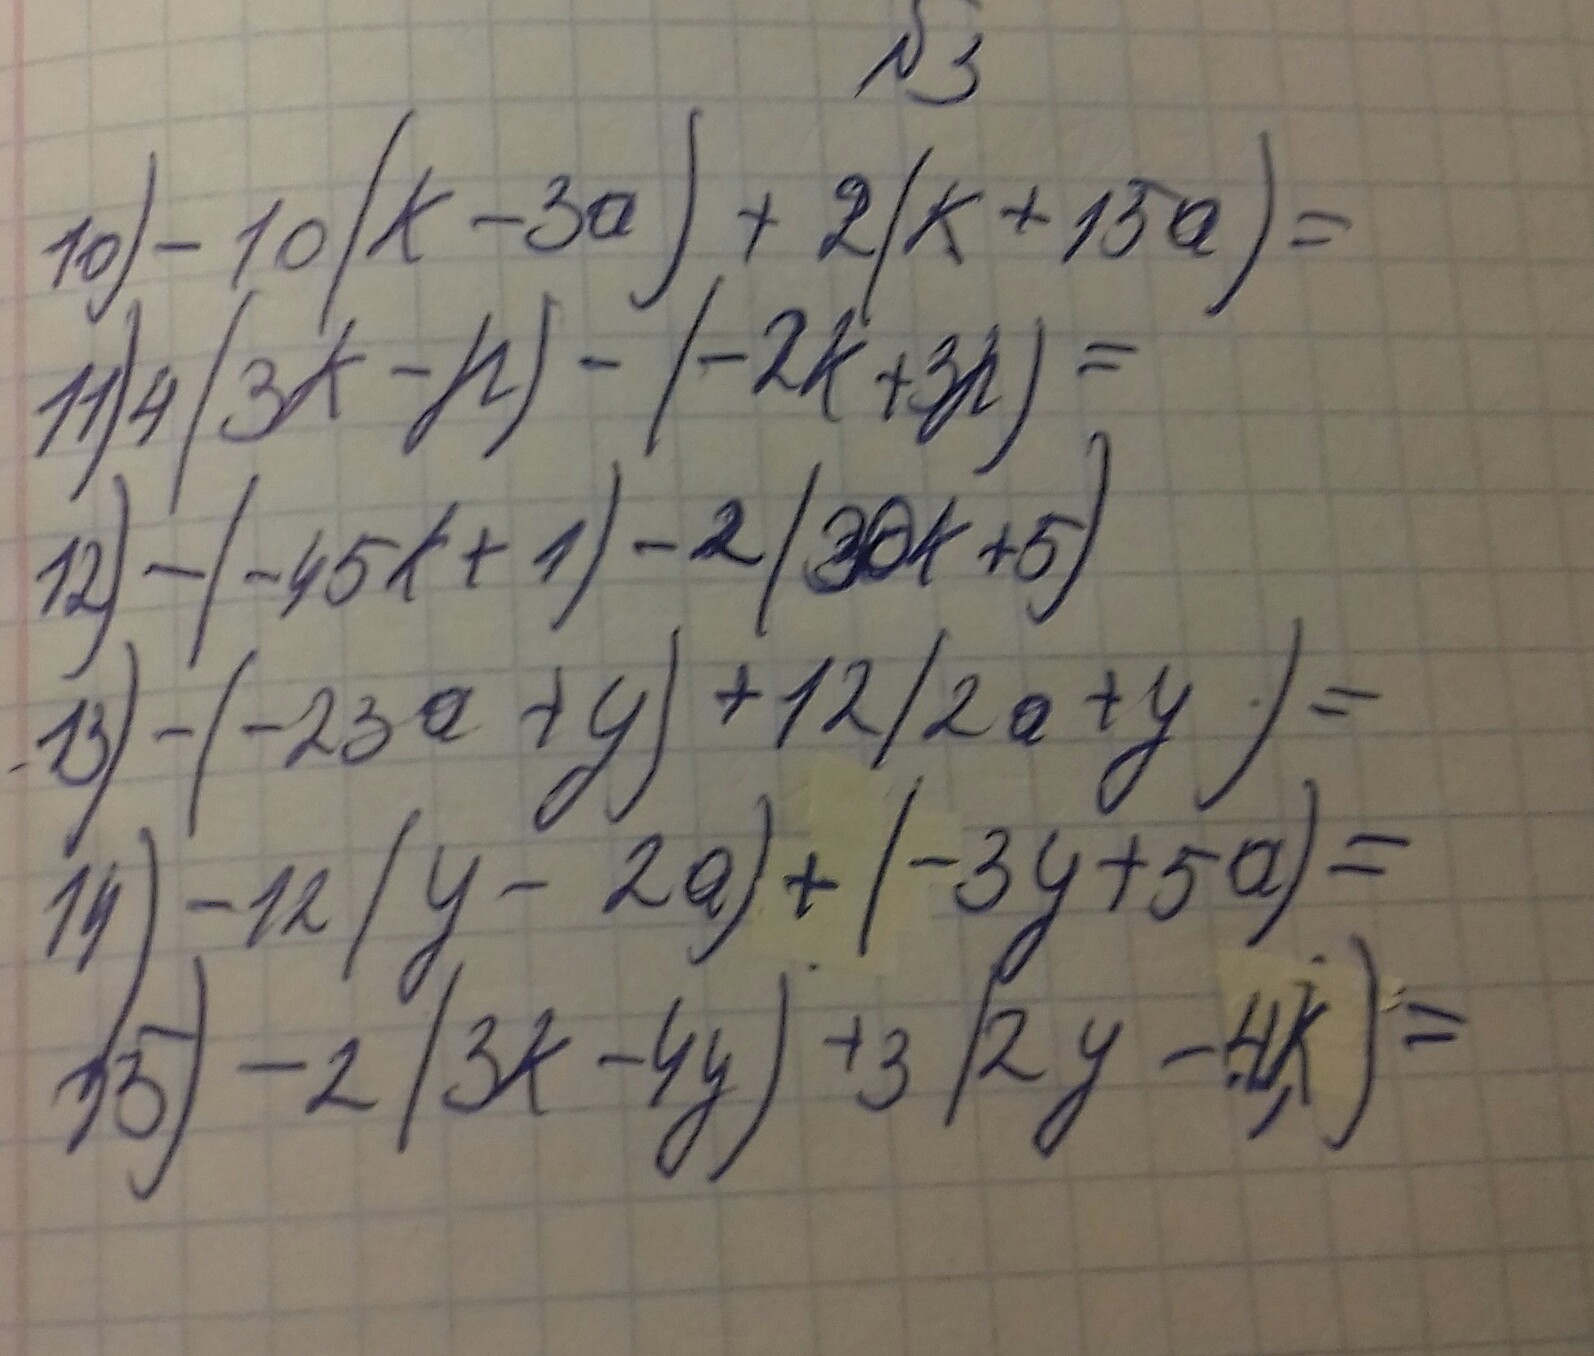 №3
10) - 10(k - 3a) + 2(k + 15a) =
11) 4(3k - p) - (-2k + 3p) =
12) - (-45k + 1) - 2(30k + 5)
13) - (-23a + y) + 12(2a + y) =
14) - 12(y - 2a) + (-3y + 5a) =
15) - 2(3k - 4y) + 3(2y - 4k) =